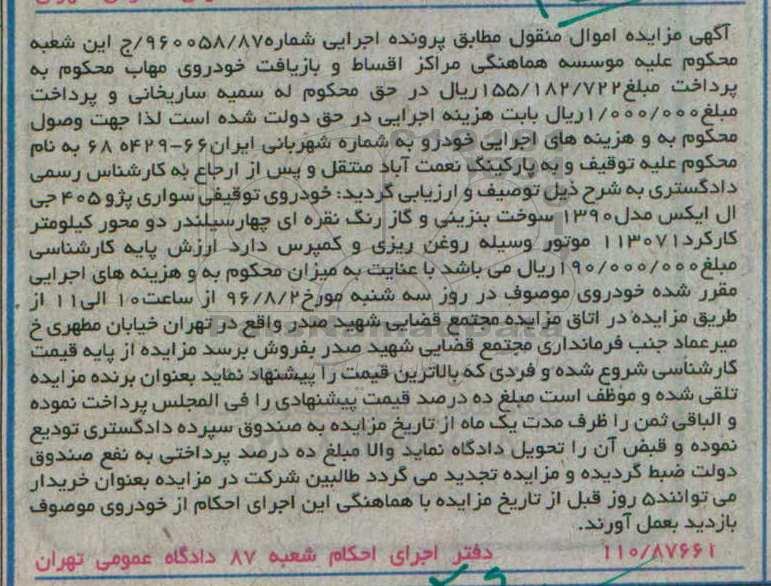 آگهی مزایده اموال منقول مطابق پرونده اجرایی شماره۹۶۰۰۵۸/۸۷/ج این شعبه
محکوم علیه موسسه هماهنگی مراکز اقساط و بازیافت خودروی مهاب محکوم به
پرداخت مبلغ۱۵۵/۱۸۲/۷۲۲ریال در حق محکوم له سمیه ساریخانی و پرداخت
مبلغ۱/۰۰۰/۰۰۰ریال بابت هزینه اجرایی در حق دولت شده است لذا جهت وصول
محکوم به و هزینه های اجرایی خودرو به شماره شهربانی ایران۶۶-۴۲۹ه ۶۸ به نام
محکوم علیه توقیف و به پارکینگ نعمت آباد منتقل و پس از ارجاع به کارشناس رسمی
دادگستری به شرح ذیل توصیف و ارزیابی گردید: خودروی توقیفی سواری پژو ۴۰۵ جی
ال ایکس مدل۱۳۹۰ سوخت بنزینی و گاز رنگ نقره ای چهارسیلندر دو محور کیلومتر
کارکرد۱۱۳۰۷۱ موتور وسیله روغن ریزی و کمپرس دارد ارزش پایه کارشناسی
مبلغ۱۹۰/۰۰۰/۰۰۰ریال می باشد با عنایت به میزان محکوم به و هزینه های اجرایی
مقرر شده خودروی موصوف در روز سه شنبه مورخ۹۶/۸/۲ از ساعت۱۰ الی۱۱ از
طریق مزایده در اتاق مزایده مجتمع قضایی شهید صدر واقع در تهران خیابان مطهری خ
میرعماد جنب فرمانداری مجتمع قضایی شهید صدر بفروش برسد مزایده از پایه قیمت
کارشناسی شروع شده و فردی که بالاترین قیمت را پیشنهاد نماید بعنوان برنده مزایده
تلقی شده و موظف است مبلغ ده درصد قیمت پیشنهادی را فی المجلس پرداخت نموده
و الباقی ثمن را ظرف مدت یک ماه از تاریخ مزایده به صندوق سپرده دادگستری تودیع
نموده و قبض آن را تحویل دادگاه نماید والا مبلغ ده درصد پرداختی به نفع صندوق
دولت ضبط گردیده و مزایده تجدید می گردد طالبین شرکت در مزایده بعنوان خریدار
می توانند۵ روز قبل از تاریخ مزایده با هماهنگی این اجرای احکام از خودروی موصوف
بازدید بعمل آورند.
۱۱۰/۸۷۶۶۱ دفتر اجرای احکام شعبه ۸۷ دادگاه عمومی تهران